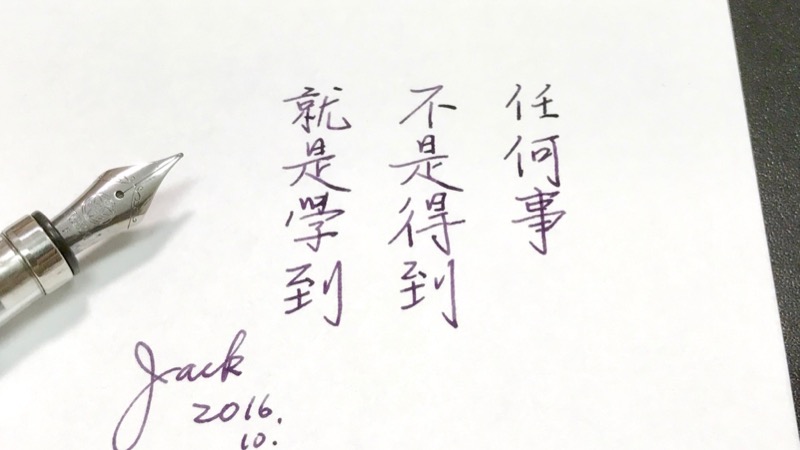 任何事
不是得到
就是學到
Jack
2016.
10.